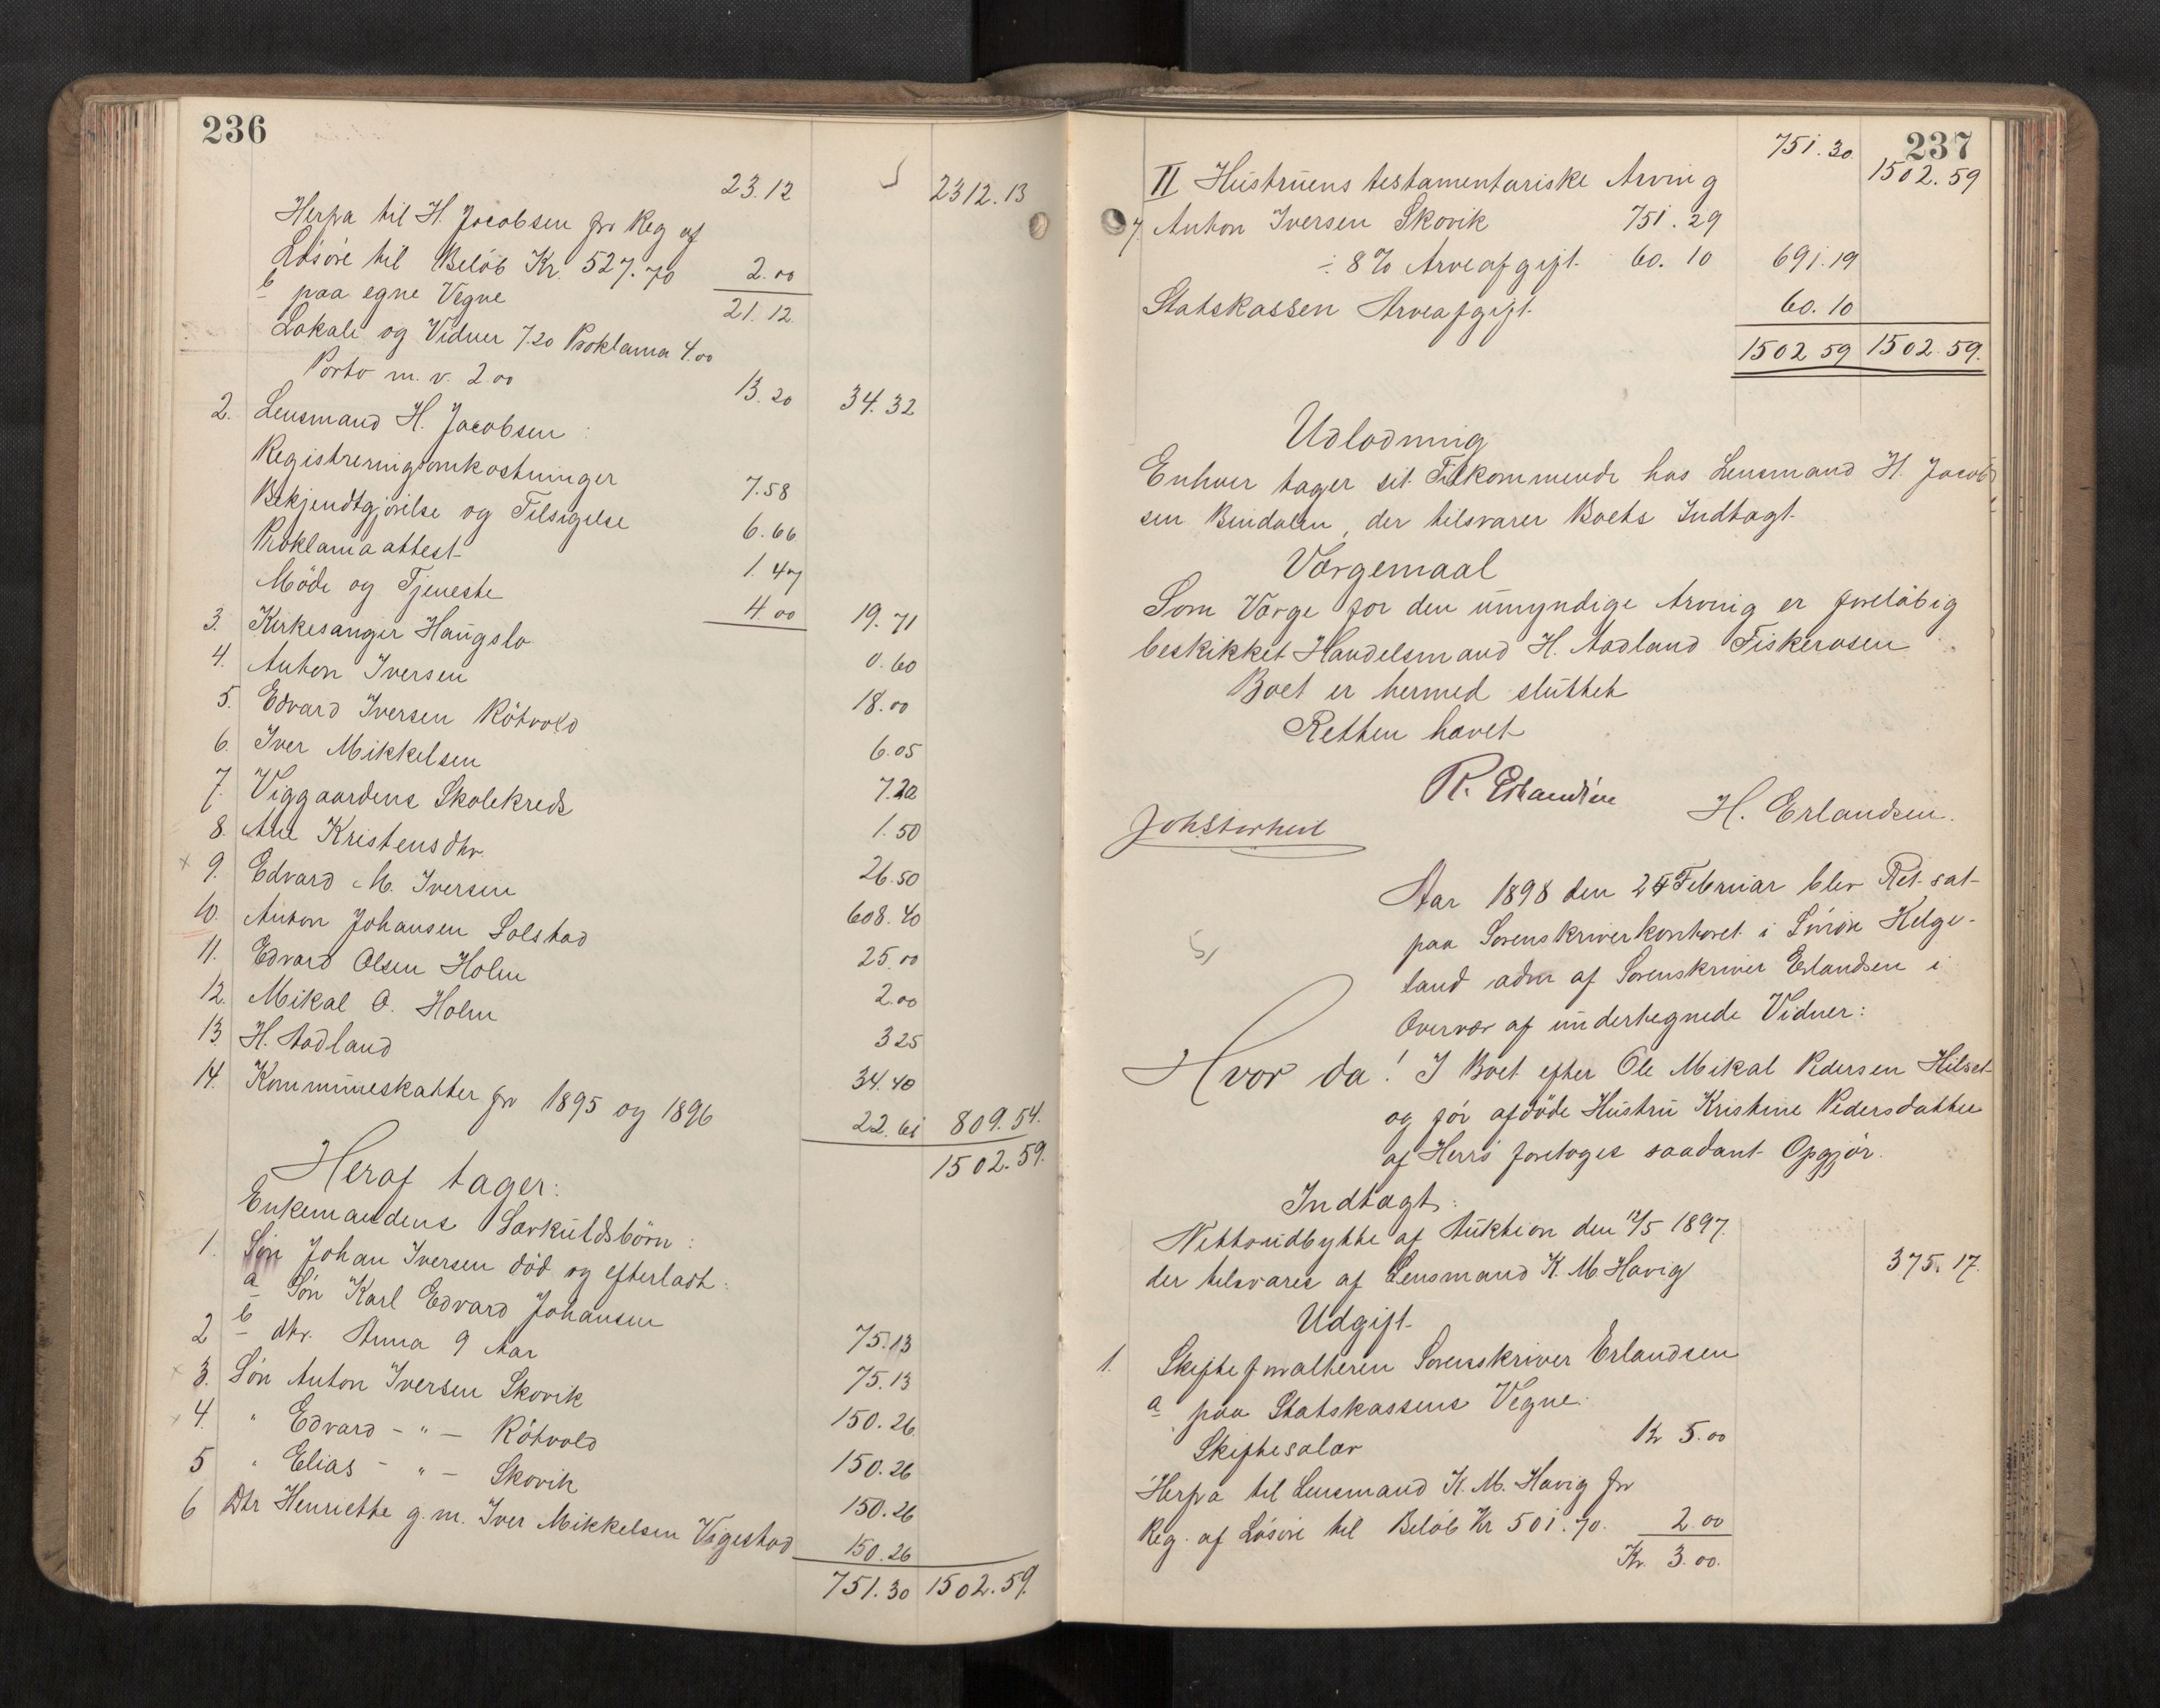 236
23.12 2312.13
Herfra til H. Jacobsen for Reg af
Løsøre til Beløb Kr. 527.70 2.00
b paa egne Vegne 21.12
Lokale og Vidner 7.20 Proklama 4.00
Porto m. v. 2.00 13.20 34.32
2. Lensmand H. Jacobsen:
Registreringsomkostninger 7.58
Bekjendtgjørelse og Tilsigelse 6.66
Proklamaattest 1.47
Møde og Tjeneste 4.00 19.71
3. Kirkesanger Haugslo 0.60
4. Anton Iversen 18.00
5. Edvard Iversen Røtvold 6.05
6. Iver Mikkelsen 7.20
7. Viggaardens Skolekreds 1.50
8. Ane Kristensdtr. 26.50
9. Edvard M. Iversen 608.40
10. Anton Johansen Solstad 25.00
11. Edvard Olsen Holm 2.00
12. Mikal O. Holm 3 25
13. H. Aadland 34.40
14. Kommuneskatter for 1895 og 1896 22.61 809.54.
1502.59.
Heraf tager:
Enkemandens Særkuldsbörn:
1. Søn Johan Iversen död og efterladt:
a Søn Karl Edvard Johansen 75.13
2 b dtr. Anna 9 Aar 75.13
3. Søn Anton Iversen Skovik 150.26
4. " Edvard - " - Røtvold 150.26
5 " Elias - " - Skovik 150.26
6 Dtr Henriette g. m. Iver Mikkelsen Vigestad 150.26
751.30 1502.59.
237
751.30 1502.59
II Hustruens testamentariske Arving
7. Anton Iversen Skovik 751.29
÷ 8% Arveafgift 60.10 691.19
Statskassen Arveafgift 60.10
1502 59 1502.59.
Udlodning
Enhver tager sit Tilkommende hos Lensmand H. Jacob
sen Bindalen, der tilsvarer Boets Indtægt
Værgemaal
Som Værge for den umyndige Arving er foreløbig
beskikket Handelsmand H. Aadland Fiskerosen
Boet er hermed sluttet
Retten hævet
R. Erlandsen H. Erlandsen.
Aar 1898 den 24 Februar blev Ret sat
paa Sorenskriverkontoret i Søndre Helge-
land adm af Sorenskriver Erlandsen i
Overvær af undertegnede Vidner:
Hvor da! I Boet efter Ole Mikal Pedersen Hilset
og før afdøde Hustru Kristine Pedersdatter
af Herrø foretoges saadant Opgjør.
Indtægt:
Nettoudbytte af Auktion den 12/5 1897.
der tilsvares af Lensmand K. M Havig 375.17.
Udgift
1. Skifteforvalteren Sorenskriver Erlandsen
a paa Statskassens Vegne:
Skiftesalær Kr 5.00
Herfra til Lensmand K. M. Havig for
Reg. af Løsøre til Beløb Kr 501.70. 2.00
Kr. 3.00.